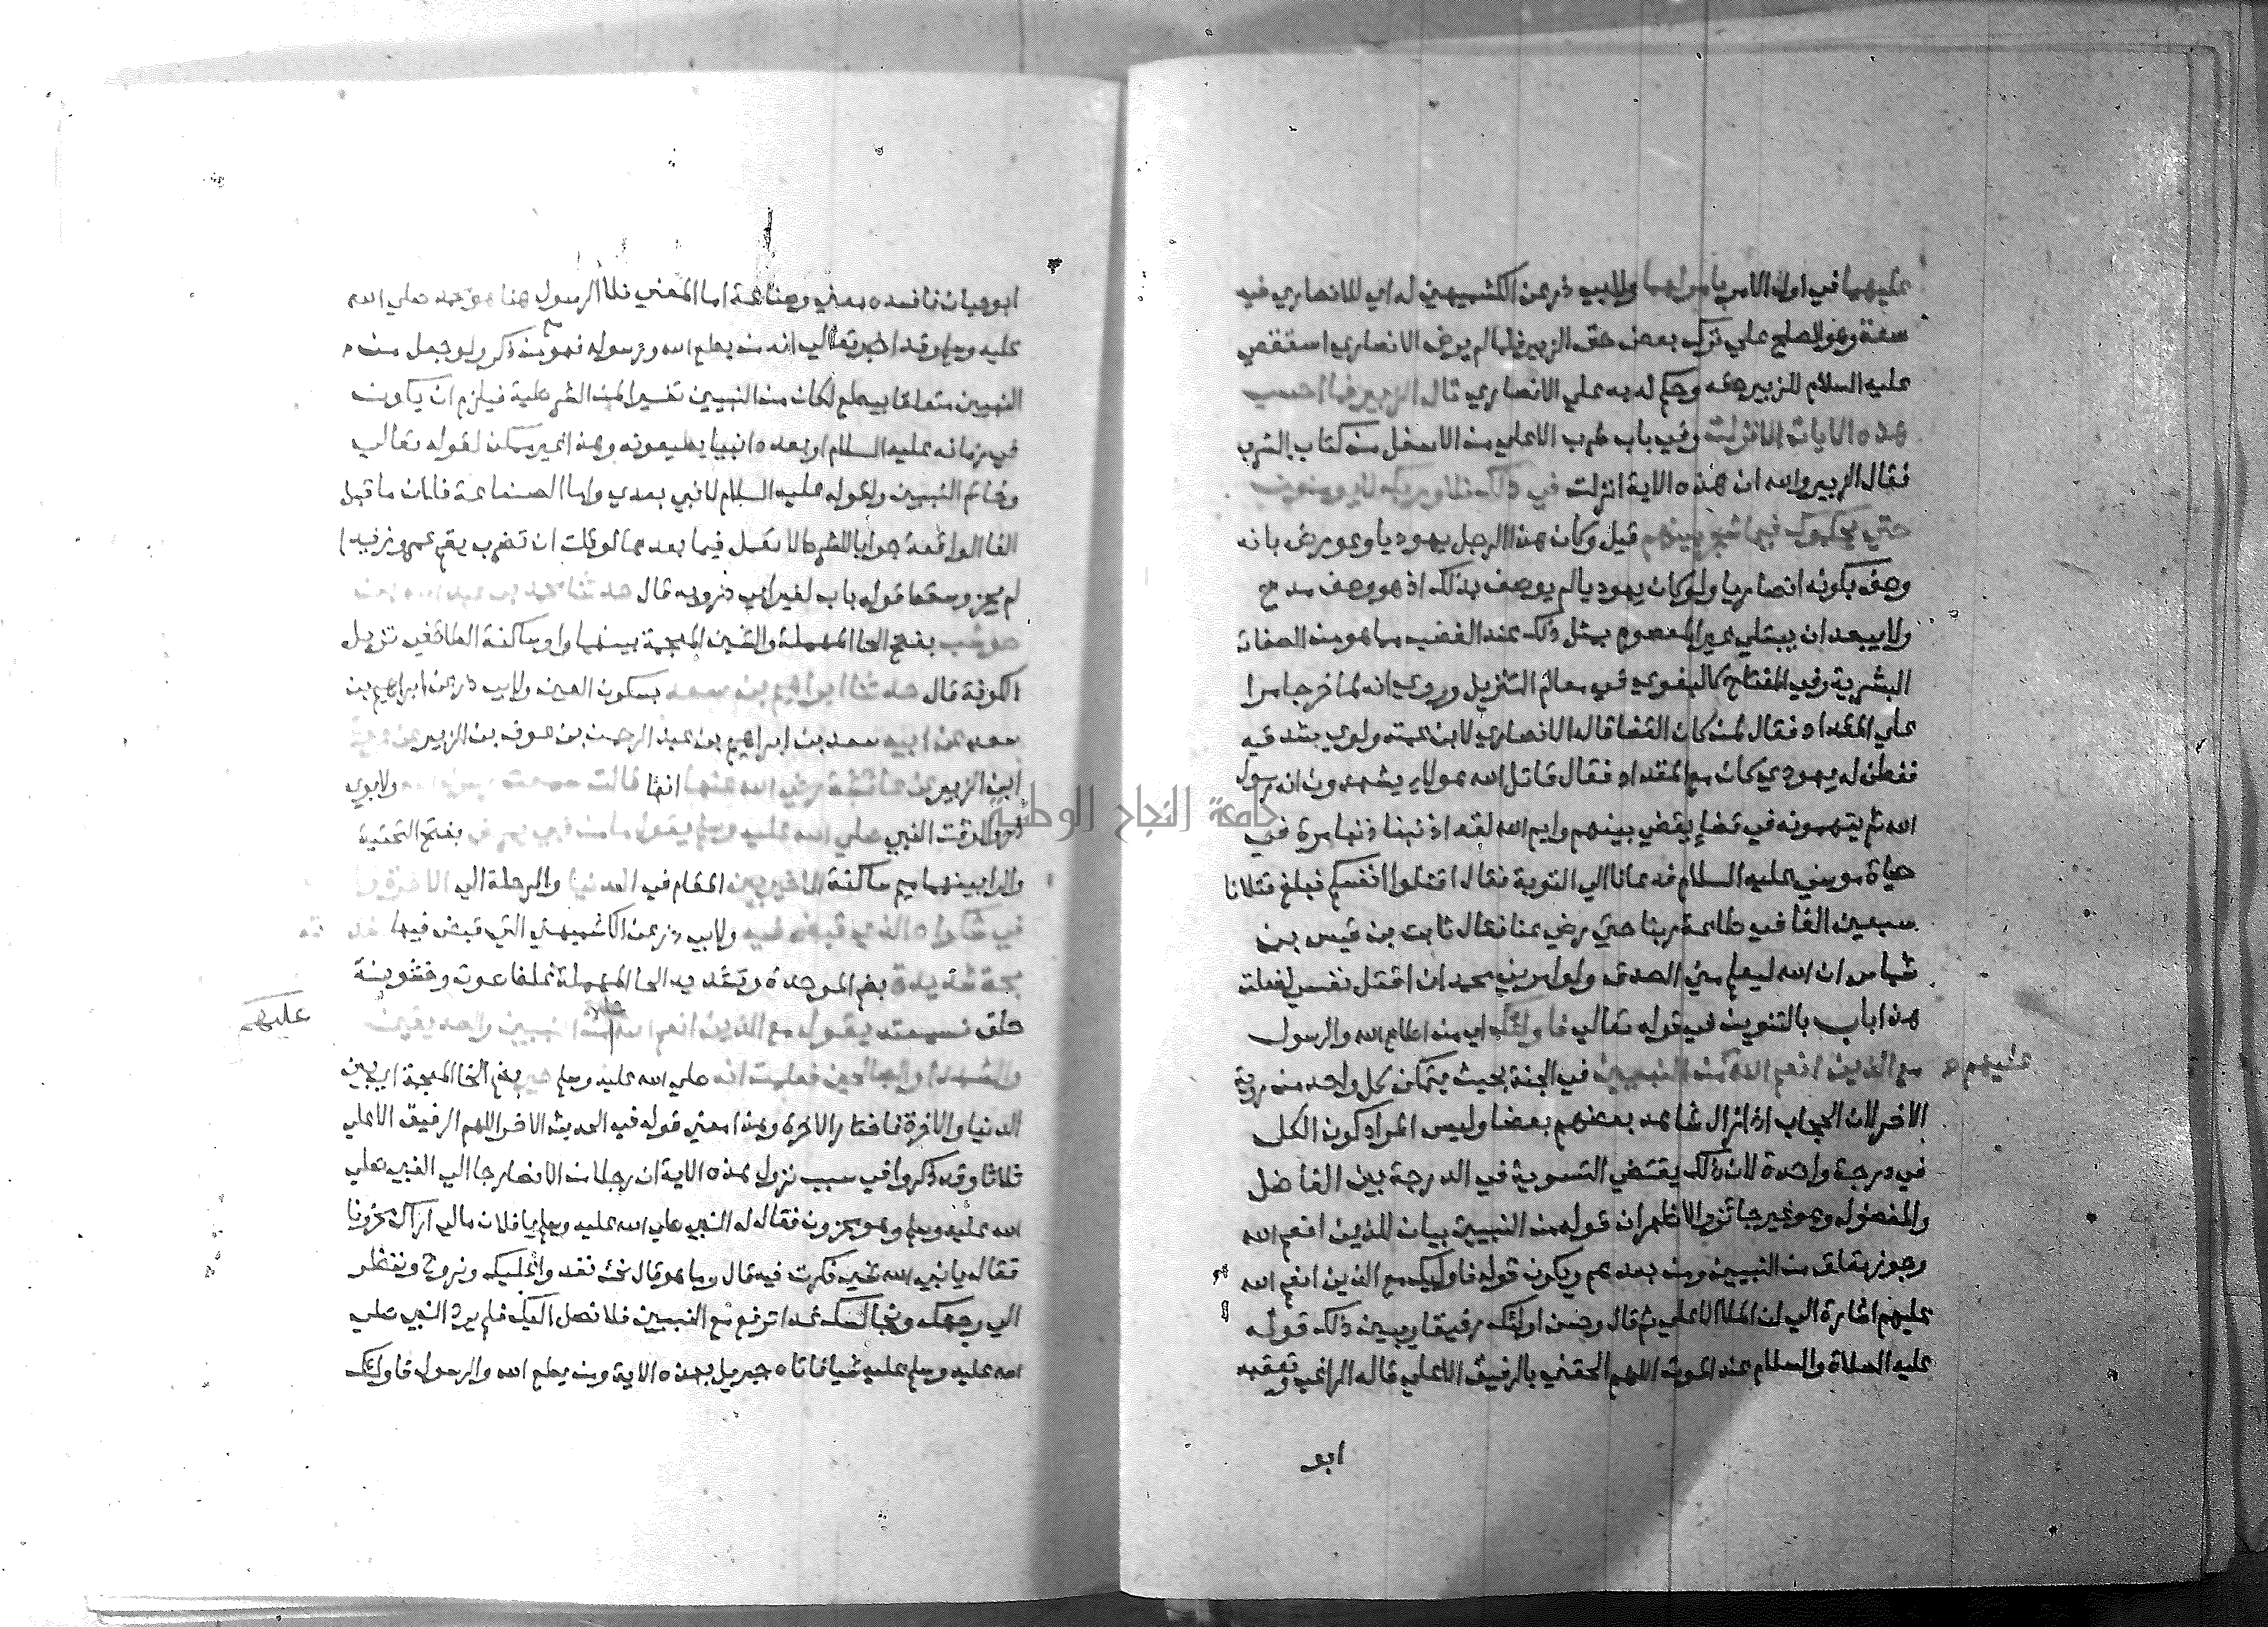 عليهما في اول الامر بامر لهما ولابي ذر عن الكشميهني له اي للانصاري فيه
سعة وهو الصلح علي ترك بعض حق الزبير فلما لم يرض الانصاري استقصي
عليه السلام للزبير حقه وحكم له به علي الانصاري قال الزبير فما احسب
هذه الايات الا نزلت وفي باب شرب الاعلي من الاسفل من كتاب الشرب
فقال الزبير والله ان هذه الاية انزلت في ذلك فلا وربك لا يومنون
حتي يحكموك فيما شجر بينهم قيل وكان هذا الرجل يهوديا وعورض بانه
وصف بكونه انصاريا ولو كان يهوديا لم يوصف بذلك اذ هو وصف مدح
ولا يبعد ان يبتلي غير المعصوم بمثل ذلك عند الغضب مما هو من الصفات
البشرية وفي المفتاح كالبغوي في معالم التنزيل وروي انه لما خرجا مرا
علي المقداد فقال لمن كان القضا قال الانصاري لابن عمته ولوي شدقيه
ففطن له يهودي كان مع المقداد فقال قاتل الله هولاء يشهدون انه رسول
الله ثم يتهمونه في قضا يقضي بينهم وايم الله لقد اذنبنا ذنبا مرة في
حياة موسي عليه السلام فدعانا الي التوبة فقال اقتلوا انفسكم فبلغ قتلانا
سبعين الفا في طاعة ربنا حتي رضي عنا فقال ثابت بن قيس بن
شماس ان الله ليعلم مني الصدق ولو امرني محمد ان اقتل نفسي لفعلت
هذا باب بالتنوين في قوله تعالي فاولئك اي من اطاع الله والرسول
مع الذين انعم الله من النبيين في الجنة بحيث يتمكن كل واحد من روية
عليهم
الاخر لان الحجاب اذا زال شاهد بعضهم بعضا وليس المراد كون الكل
في درجة واحدة لان ذلك يقتضي التسوية في الدرجة بين الفاضل
والمفضول وهو غير جائز والاظهر ان قوله من النبيين بيان للذين انعم الله
وجوز تعلق من النبيين ومن بعدهم ويكون قوله فاوليك مع الذين انعم الله
عليهم اشارة الي ان الملا الاعلي ثم قال وحسن اولئك رفيقا ويبين ذلك قوله
عليه الصلاة والسلام عند الموت اللهم الحقني بالرفيق الاعلي قاله الراغب وتعقبه
ابو
ابو حيان فافسده معني وصناعة اما المعني فلان الرسول هنا هو محمد صلي الله
عليه وسلم وقد اخبر تعالي انه من يطع الله ورسوله فهو مع من ذكر ولو جعل من
النبيين متعلقا بيطع لكان من النبيين تفسير المن الشرطية فيلزم ان يكون
في زمانه عليه السلام او بعده انبيا يطيعونه وهذا غير ممكن لقوله تعالي
وخاتم النبيين ولقوله عليه السلام لا نبي بعدي واما الصناعة فلان ما قبل
الفا الواقعة جوابا للشرط لا يعمل فيما بعدها لو قلت ان تضرب يقم عمرو زيدا
لم يجز وسقط قوله باب لغير ابي ذر وبه قال حدثنا محمد بن عبد الله بن
حوشب بفتح الحا المهملة والشين المعجمة بينهما واو ساكنة الطائفي نزيل
الكوفة قال حدثنا ابراهيم بن سعد بسكون العين ولابي ذر عن ابراهيم بن
سعد عن ابيه سعد بن ابراهيم بن عبد الرحمن بن عوف بن الزبير عن عروة
ابن الزبير عن عائشة رضي الله عنها انها قالت سمعت ولابوي
ذر والوقت النبي صلي الله عليه وسلم يقول ما من نبي يمرض بفتح التحتية
والرا بينهما ميم ساكنة الا خير بين المقام في الدنيا والرحلة الي الاخرة و
في شكواه الذي قبض فيه ولابي ذر عن الكشميهني التي قبض فيها
بحة شديدة بضم الموحدة وتشديد الحا المهملة غلظ صوت وخشونة
حلق فسمعته يقول مع الذين انعم الله من النبيين والصديقين
عليهم
والشهدا والصالحين فعلمت انه صلي الله عليه وسلم خير بضم الخا المعجمة اي بين
الدنيا والاخرة فاختار الاخرة وهذا معني قوله في الحديث الاخر اللهم الرفيق الاعلي
ثلاثا وقد ذكروا في سبب نزول هذه الاية ان رجلا من الانصار جا الي النبي صلي
الله عليه وسلم وهو محزون فقال له النبي صلي الله عليه وسلم يا فلان مالي اراك محزونا
فقال يا نبي الله شي فكرت فيه قال وما هو قال نحن نغدو عليك ونروح وننظر
الي وجهك ونجالسك غدا ترفع مع النبيين فلا نصل اليك فلم يرد النبي صلي
الله عليه وسلم عليه شيا فاتاه جبريل بهذه الاية ومن يطع الله والرسول فاولئك